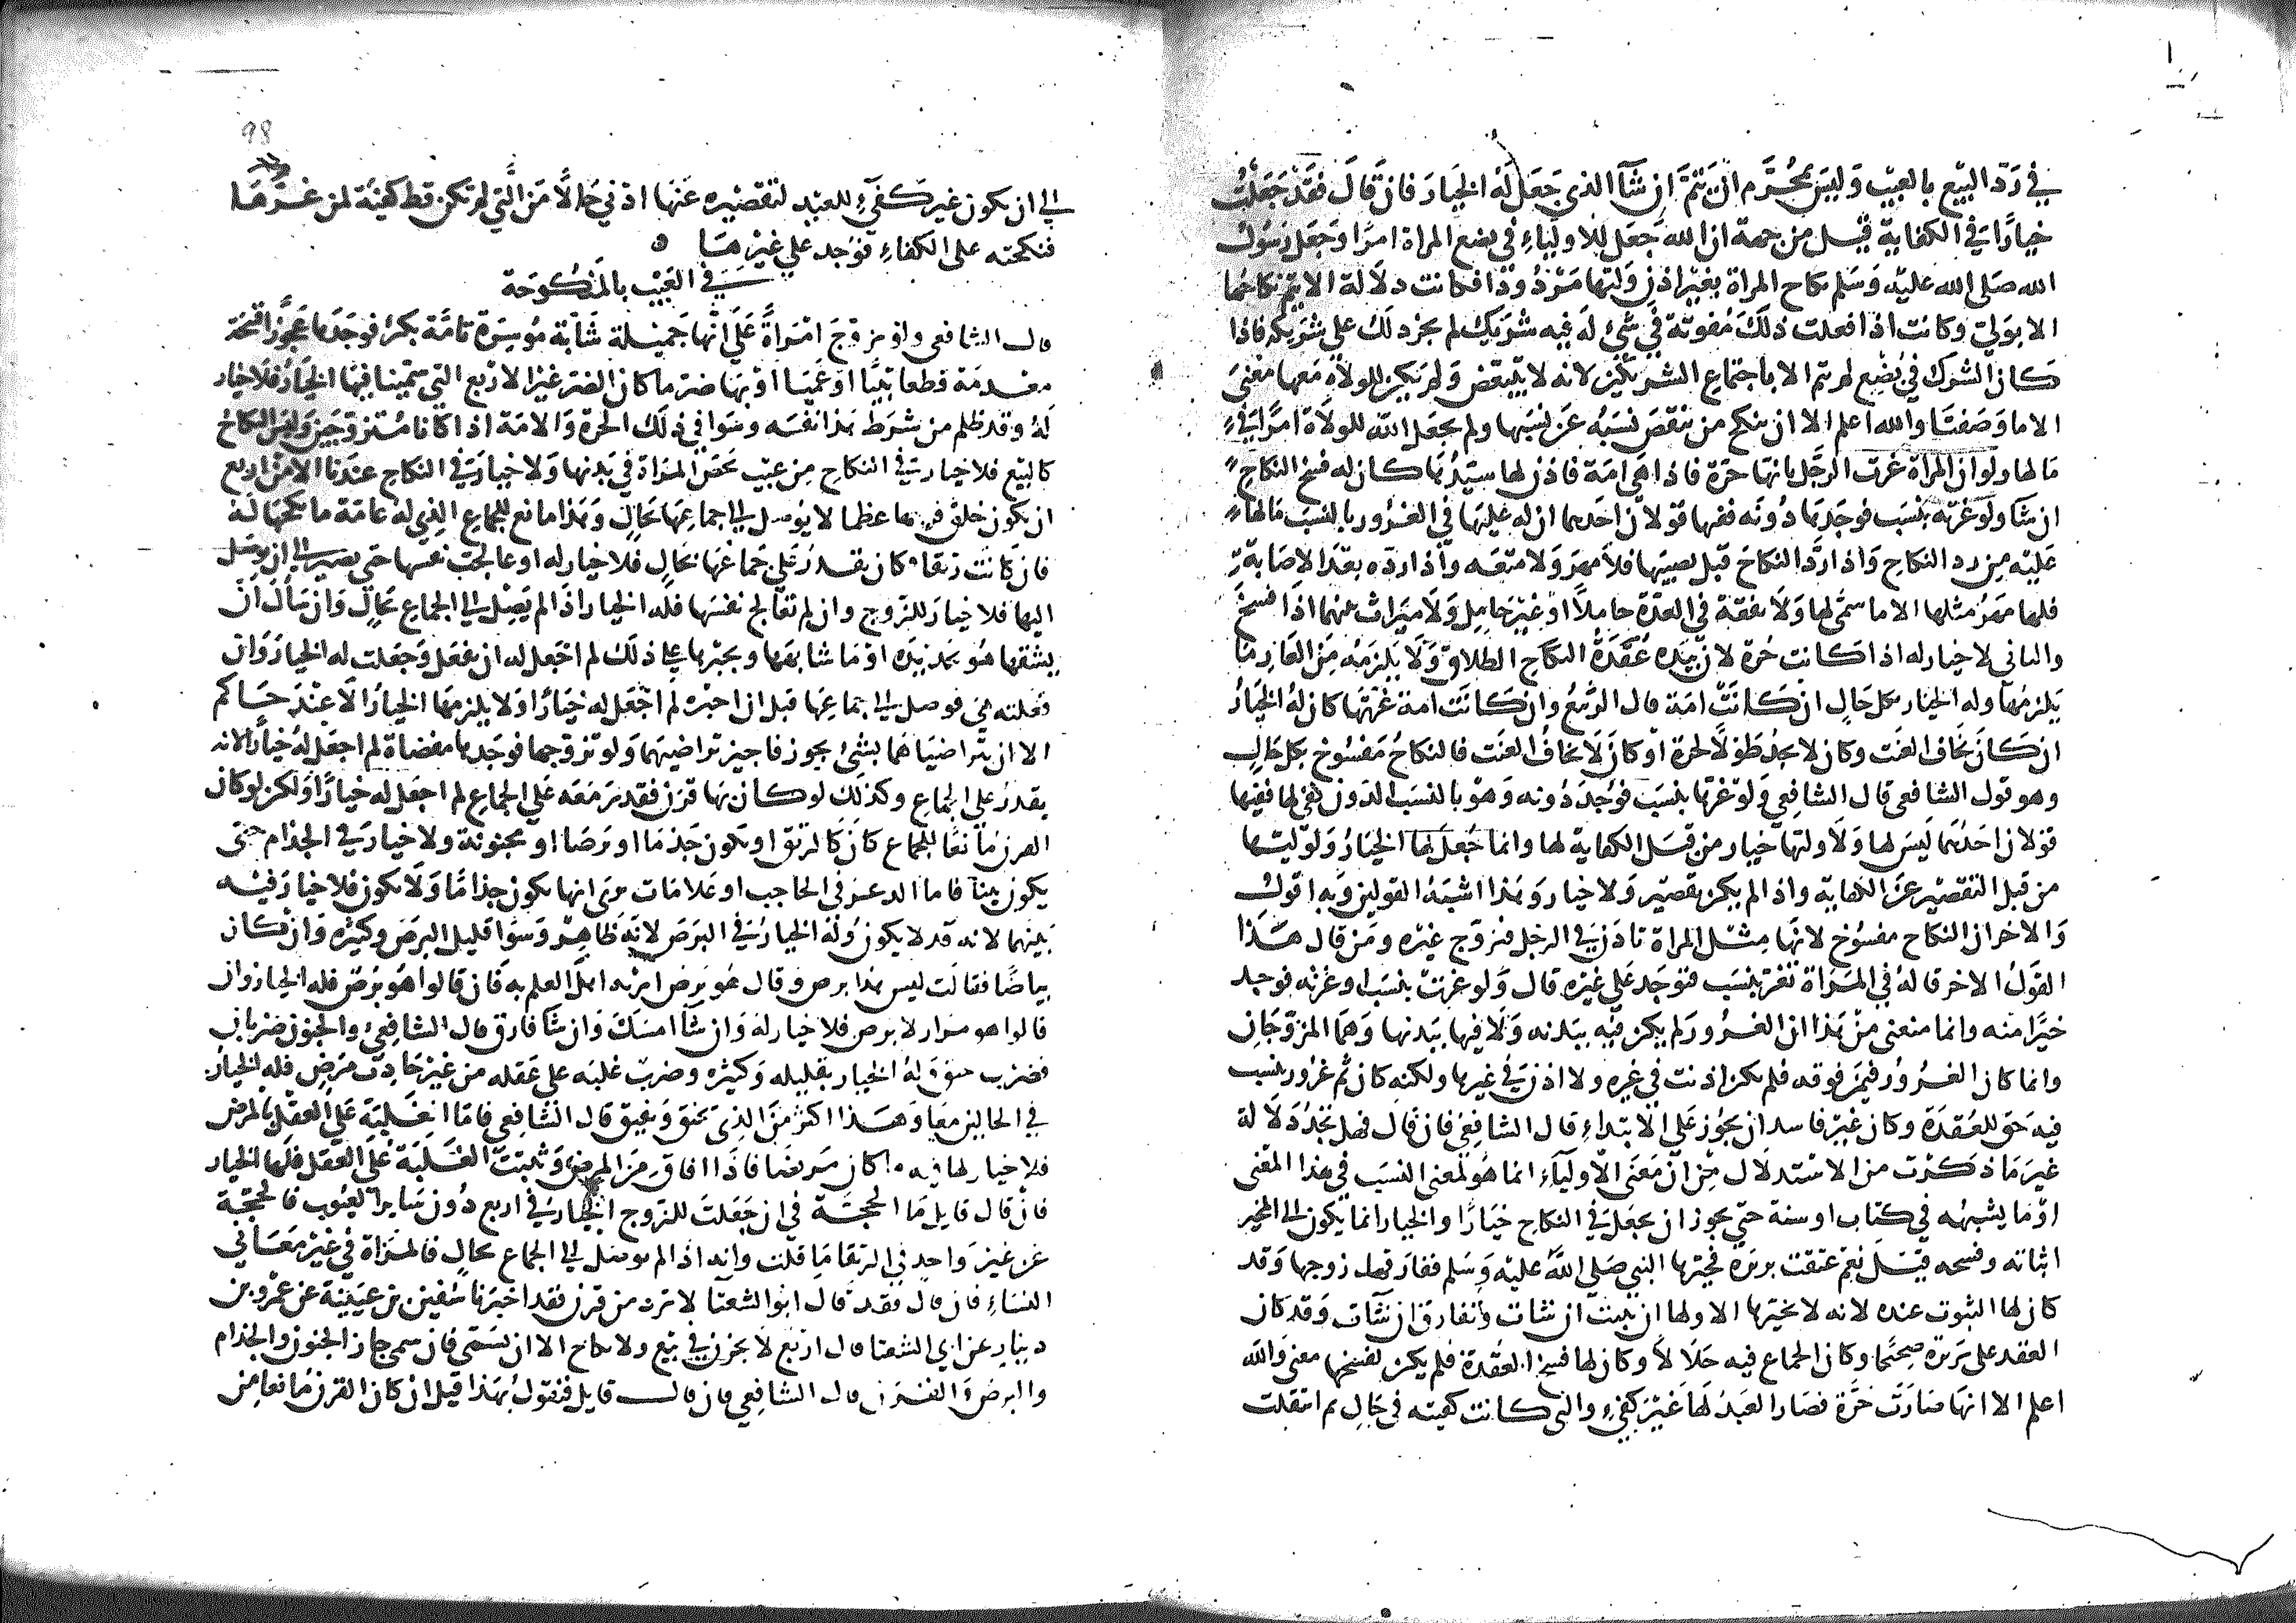 في رد البيع بالعيب وليس بمحرم ان يتم ان شاء الذي جعل له الخيار فان قال فقد جعلت
خيارا في الكفاية قيل من جهة ان الله جعل للاولياء في بضع المراة امرا وجعل رسول
الله صلى الله عليه وسلم نكاح المراة بغير اذن وليها مردودا فكانت دلالة الا يتم نكاحها
الا بولي وكانت اذا فعلت ذلك مفوتة في شئ له فيه شريك لم يجز ذلك على شريكه فاذا
كان الشرك في بضع لم يتم الا باجتماع الشريكين لانه لا يتبعض ولم يكن للولاه معها معنى
الا ما وصفنا والله اعلم الا ان ينكح من ينقص نسبه عن نسبها ولم يجعل الله للولاة امرا في
مالها ولو ان المراة غرت الرجل بانها حرة فاذا هي امة فاذن لها سيدها كان له فسخ النكاح
ان شا ولو غرته بنسب فوجدها دونه ففيها قولان احدهما ان له عليها في الغرور بالنسب مالها
عليه من رد النكاح واذا رد النكاح قبل يصيبها فلا مهر ولا متعه واذا رده بعد الاصابة
فلها مهر مثلها الا ما سمى لها ولا نفقة في العدة حاملا او غير حامل ولا ميراث بينهما اذا فسخ
والثاني لا خيار له اذا كانت حرة لان بيده عقدة النكاح الطلاق ولا يلزمه من العار ما
يلزمها وله الخيار بكل حال ان كانت امة قال الربيع وان كانت امة غرته بها كان له الخيار
ان كان يخاف العنت وكان لا يجد طولا لحرة او كان لا يخاف العنت فالنكاح مفسوخ بكل حال
وهو قول الشافعي قال الشافعي ولو غرها بنسب فوجد دونه وهو بالنسب الدون كفئ لها ففيها
قولان احدهما ليس لها ولا وليها خيار من قبل الكفاية لها وانما جعل لها الخيار ولوليها
من قبل التقصير عن الكفاية واذا لم يكن تقصير ولا خيار وهذا اشبه القولين وبه اقول
والاخر ان النكاح مفسوخ لانها مثل المراة تاذن في الرجل فتزوج غيره ومن قال هذا
القول الاخر قاله في المراة تغر بنسب فتوجد على غيره قال ولو غرت بنسب او غرته فوجد
خيرا منه وانما منعني من هذا ان الغرور لم يكن فيه ببدنه ولا فيها ببدنها وهما المزوجان
وانما كان الغرور فيمن فوقه فلم تكن اذنت في غيره ولا اذن في غيرها ولكنه كان ثم غرور بنسب
فيه حق للعقدة وكان غير فاسد ان يجوز على الابتداء قال الشافعي فان قال فهل تجد دلالة
غير ما ذكرت من الاستدلال من ان معنى الاولياء انما هو لمعنى النسب في هذا المعنى
او ما يشبهه في كتاب او سنة حتى يجوز ان يجعل في النكاح خيارا والخيار انما يكون الى المخير
اثباته وفسخه قيل نعم عتقت بريرة فخيرها النبي صلى الله عليه وسلم ففارقت زوجها وقد
كان لها الثبوت عنده لانه لا يخيرها الا ولها ان تثبت ان شات وتفارق ان شات وقد كان
العقد على بريرة صحيحا وكان الجماع فيه حلالا وكان لها فسخ العقدة فلم يكن لفسخها معنى والله
اعلم الا انها صارت حرة فصار العبد لها غير كفئ والتي كانت كفيته في حال ثم انتقلت
98
الى ان يكون غير كفئ للعبد لتقصيره عنها ادنى حالا من التي لم تكن قط كفيئة لمن غرها
فنكحته على الكفاء فوجد على غيرها
في العيب بالمنكوحة
قال الشافعي ولو تزوج امراة على انها جميلة شابة موسرة تامة بكر فوجدها عجوزا قبيحة
معدمة قطعا ثيبا او عميا او بها ضر ما كان الضر غير الاربع التي سمينا فيها الخيار فلا خيار
له وقد ظلم من شرط هذا نفسه وسوا في ذلك الحرة والامة اذا كانا متزوجين وليس النكاح
كالبيع فلا خيار في النكاح من عيب يخص المراة في بدنها ولا خيار في النكاح عندنا الا من اربع
ان يكون حلق فرجها عظما لا يوصل الى جماعها بحال وهذا مانع للجماع الذي له عامة ما نكحها له
فان كانت رتقا فكان يقدر على جماعها بحال فلا خيار له او عالجت نفسها حتى يصير الى ان يوصل
اليها فلا خيار للزوج وان لم تعالج نفسها فله الخيار اذا لم يصل الى الجماع بحال وان سال ان
يشقها هو بحديدة او ما شابهها ويجبرها على ذلك لم اجعل له ان يفعل وجعلت له الخيار وان
فعلته هي فوصل الى جماعها قبل ان اخيره لم اجعل له خيارا ولا يلزمها الخيار الا عند حاكم
الا ان يتراضيا هما بشئ يجوز فاجيز تراضيهما ولو تزوجها فوجدها مفضاة لم اجعل له خيارا لانه
يقدر على الجماع وكذلك لو كان بها قرن فقدر معه على الجماع لم اجعل له خيارا ولكن لو كان
القرن مانعا للجماع كان كالرتق او تكون جذما او برصا او مجنونة ولا خيار في الجذام حتى
يكون بينا فاما الزعر في الحاجب او علامات ترى انها تكون جذاما ولا تكون فلا خيار فيه
بينهما لانه قد لا يكون وله الخيار في البرص لانه ظاهر وسوا قليل البرص وكثيره وان كان
بياضا فقالت ليس هذا برص وقال هو برص اريه اهل العلم به فان قالوا هو برص فله الخيار وان
قالوا هو مرار لا برص فلا خيار له وان شا امسك وان شا فارق قال الشافعي والجنون ضربان
فضرب خنق وله الخيار بقليله وكثيره وضرب غلبه على عقله من غير حادث مرض فله الخيار
في الحالين معا وهذا اكثر من الذي يخنق ويفيق قال الشافعي فاما الغلبة على العقل بالمرض
فلا خيار لها فيه ما كان مريضا فاذا افاق من المرض وثبتت الغلبة على العقل فلها الخيار
فان قال قايل ما الحجة في ان جعلت للزوج الخيار في اربع دون ساير العيوب فالحجة
عن غير واحد في الرتقا ما قلت وانه اذا لم يوصل الى الجماع بحال فالمراة في غير معاني
النساء فان قال فقد قال ابو الشعثا لا ترد من قرن فقد اخبرنا سفين بن عيينة عن عمرو بن
دينار عن ابي الشعثا قال اربع لا يجزن في بيع ولا نكاح الا ان تسمى فان سمى جاز الجنون والجذام
والبرص والقرن قال الشافعي فان قال قايل فتقول بهذا قيل ان كان القرن مانعا من